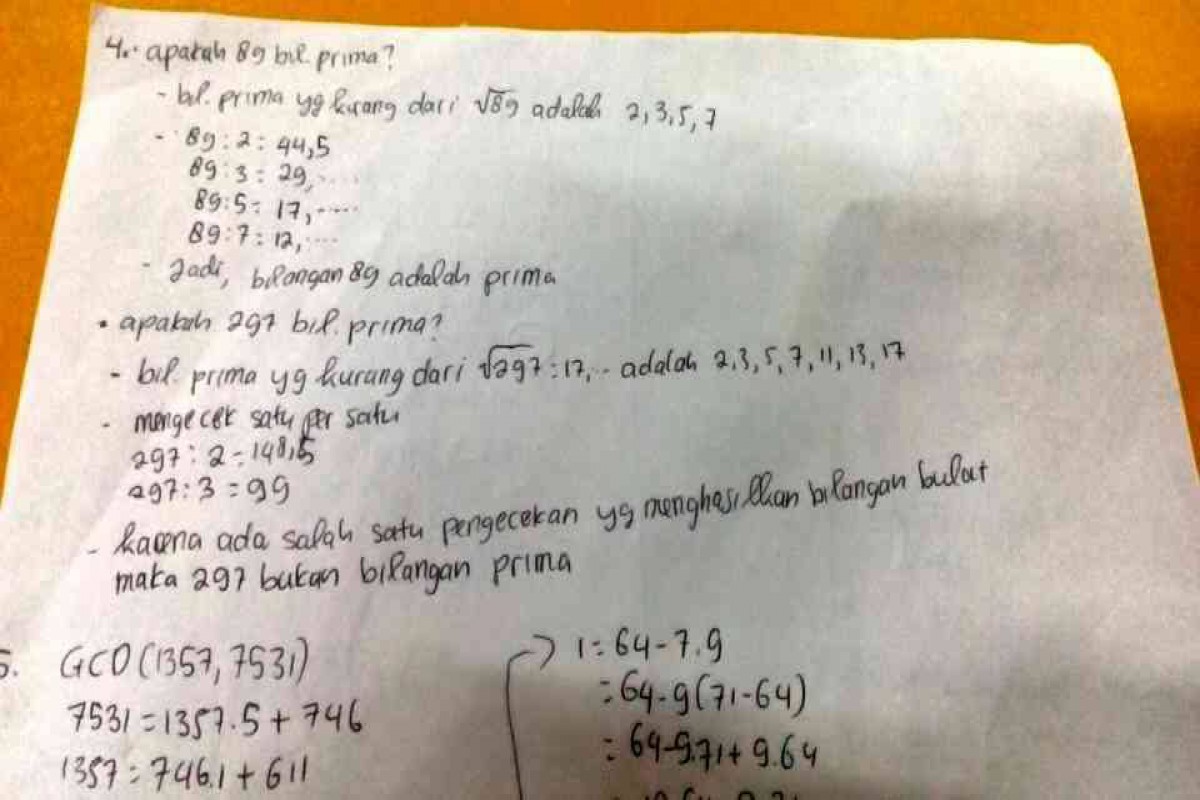 4. • apakah 89 bil. prima?
- bil. prima yg kurang dari √89 adalah 2, 3, 5, 7
- 89 : 2 = 44,5
89 : 3 = 29,.....
89 : 5 = 17,.....
89 : 7 = 12,....
- Jadi, bilangan 89 adalah prima
• apakah 297 bil. prima?
- bil. prima yg kurang dari √297 = 17,.. adalah 2, 3, 5, 7, 11, 13, 17
- mengecek satu per satu
297 : 2 = 148,5
297 : 3 = 99
- karena ada salah satu pengecekan yg menghasilkan bilangan bulat
maka 297 bukan bilangan prima
5. GCD (1357, 7531)
7531 = 1357.5 + 746
1357 = 746.1 + 611
→ 1 = 64 - 7.9
= 64 - 9(71 - 64)
= 64 - 9.71 + 9.64